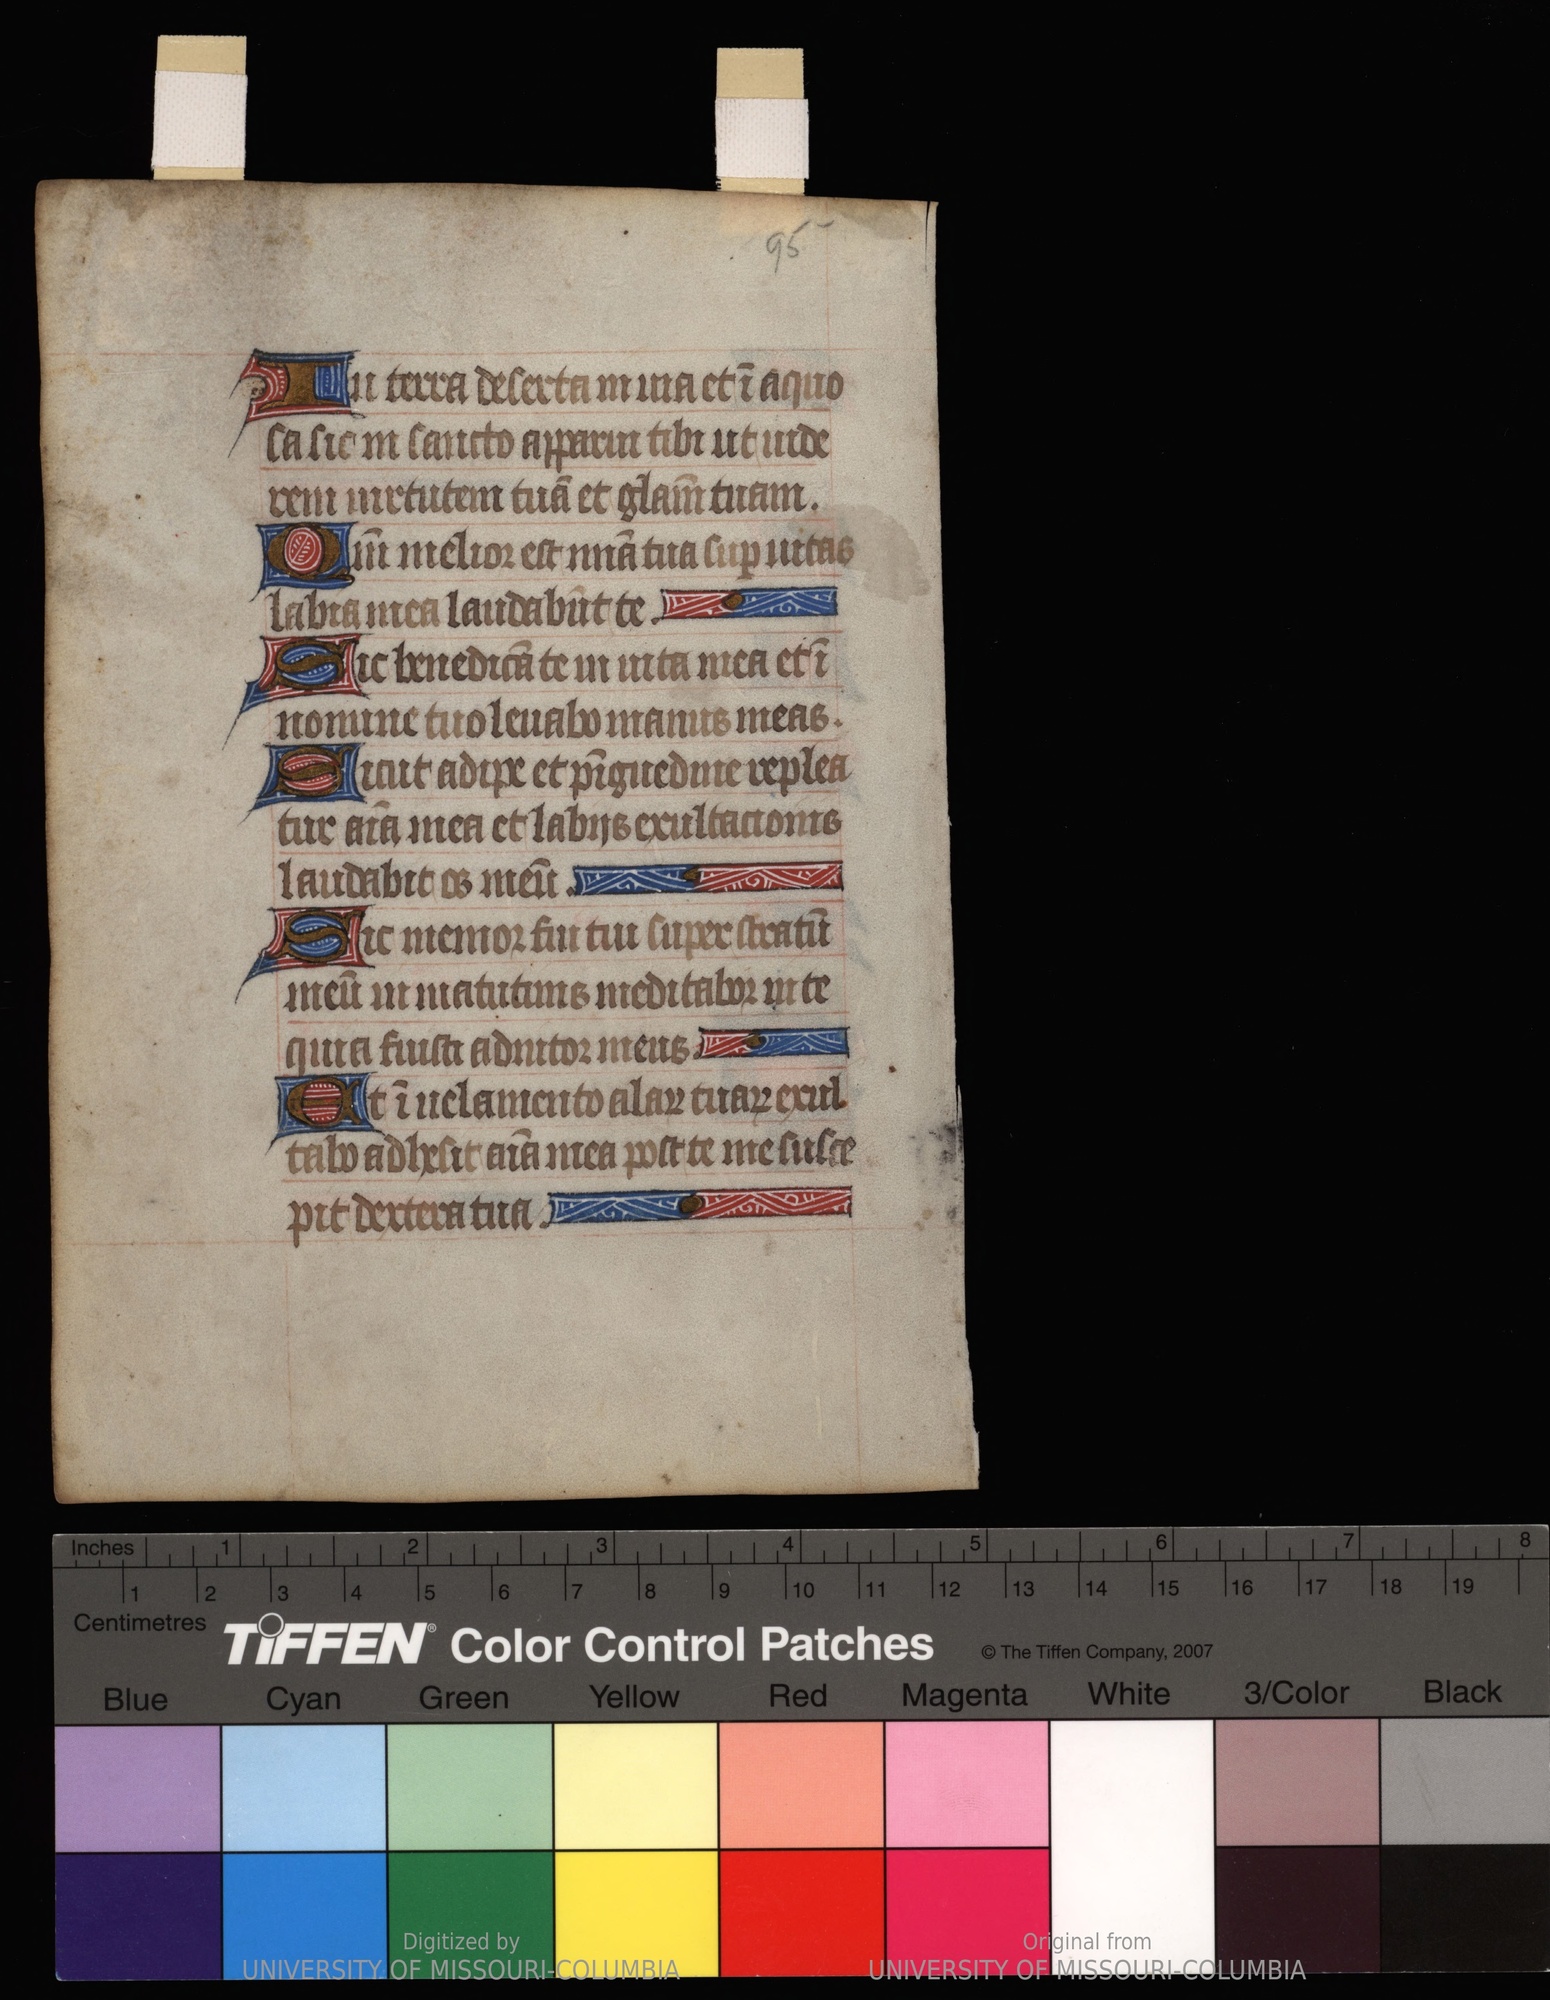 95
In terra deserta in uia et ī aquo
sa sic in sancto apparui tibi ut uide
rem uirtutem tuā et glām̄ tuam.
Qm̄ melior est mīā tua sup uitas
labia mea laudabūt te.
Sic benedicā te in uita mea et ī
nomine tuo leuabo manus meas.
Sicut adipe et pīguedine replea
tur aīā mea et labijs exultacionis
laudabit os meū.
Sic memor fui tui super stratū
meū in matutinis meditabor in te
quia fuisti adiutor meus.
Et ī uelamento alaꝝ tuaꝝ exul
tabo adhesit aīā mea post te me susce
pit dextera tua.
Inches 1 2 3 4 5 6 7 8
1 2 3 4 5 6 7 8 9 10 11 12 13 14 15 16 17 18 19
Centimetres
TIFFEN® Color Control Patches © The Tiffen Company, 2007
Blue Cyan Green Yellow Red Magenta White 3/Color Black
Digitized by Original from
UNIVERSITY OF MISSOURI-COLUMBIA UNIVERSITY OF MISSOURI-COLUMBIA